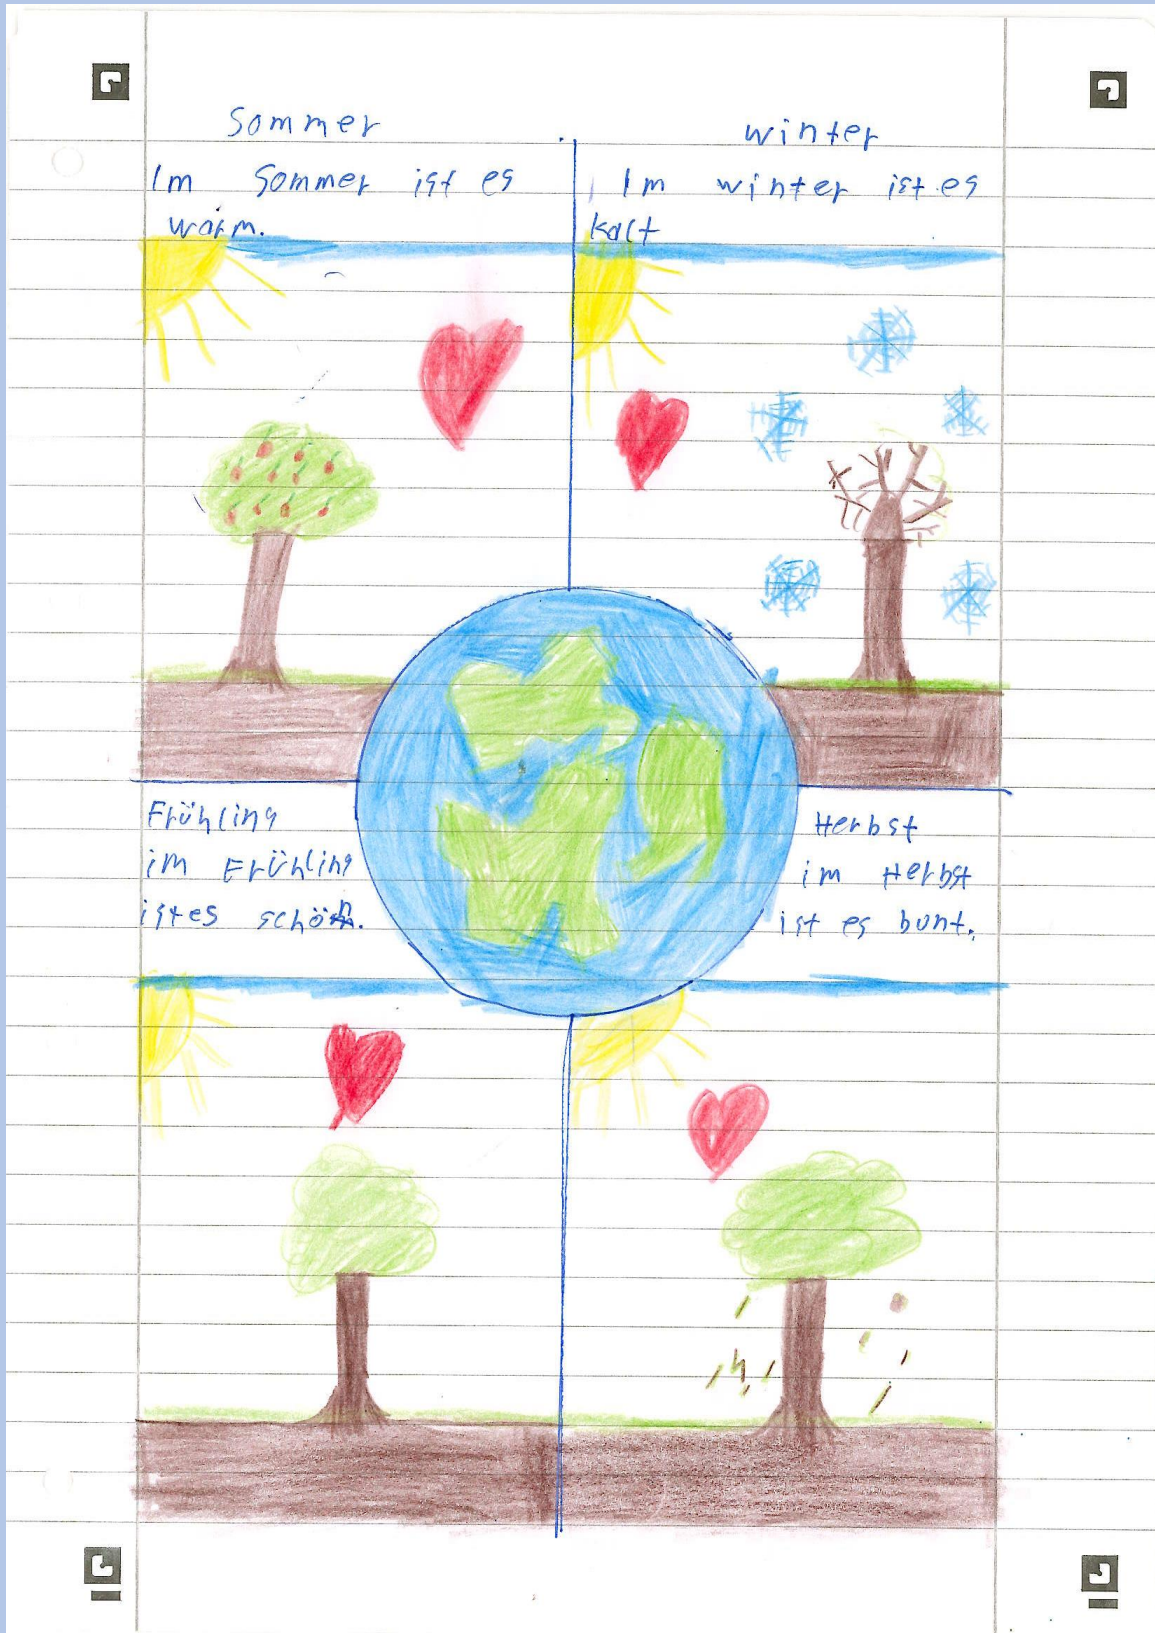 Sommer
Im Sommer ist es
warm.
winter
Im winter ist es
kalt
Frühling
im Frühling
ist es schön.
Herbst
im Herbst
ist es bunt.